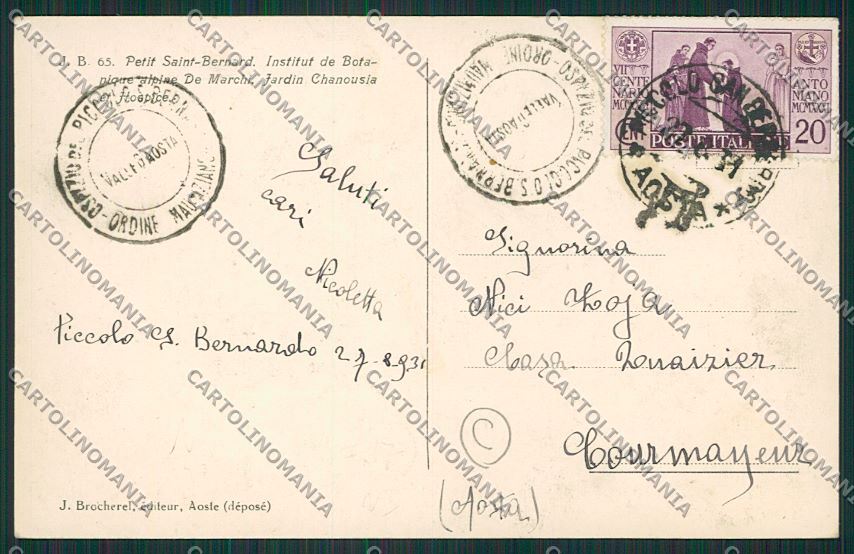 J. B. 65. Petit Saint-Bernard. Institut de Bota-
nique alpine De Marchi. Jardin Chanousia
et Hospice.
OSPIZIO DE PICCOLO S. BERNARDO
ORDINE MAURIZIANO
VALLE D'AOSTA
OSPIZIO DE PICCOLO S. BERNARDO
ORDINE MAURIZIANO
VALLE D'AOSTA
VII CENTENARIO
MCMXXXI
ANTONIANO
CENT
POSTE ITALIANE
20
PICCOLO SAN BERNARDO
AOSTA
Saluti
cari
Nicoletta
Piccolo S. Bernardo 27-8-931
Signorina
Nici
Casa
Courmayeur
(Aosta)
C
J. Brocherel, éditeur, Aoste (déposé)
CARTOLINOMANIA